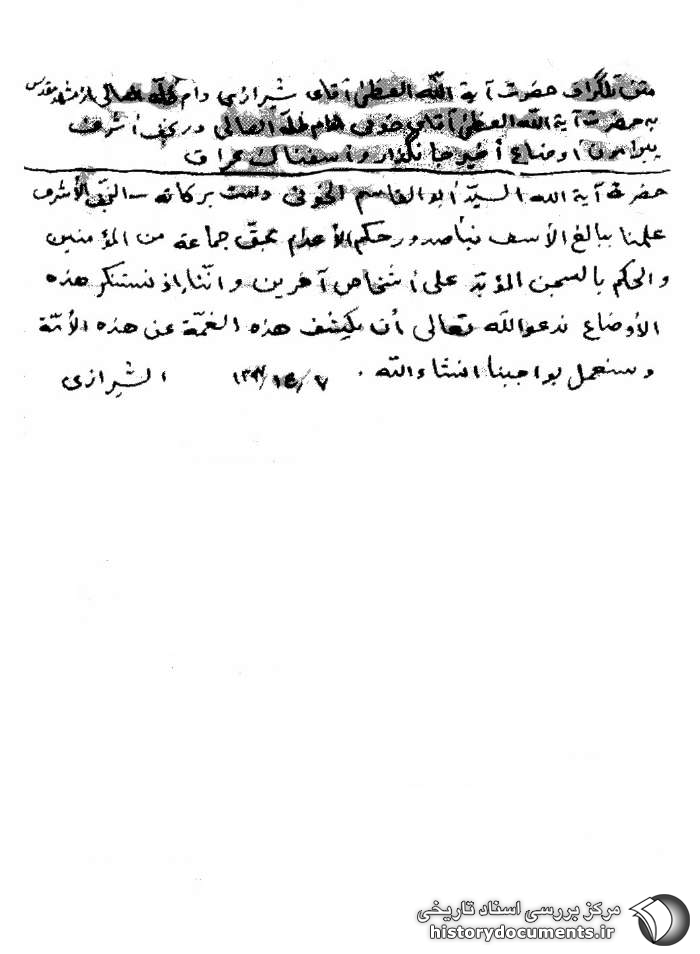 متن تلگراف حضرت آیة الله العظمی آقای شیرازی دام ظله العالی از مشهد مقدس
به حضرت آیة الله العظمی آقای خوئی دام ظله العالی در نجف أشرف
پیرامون اوضاع أخیر جانگداز و أسفناک عراق
حضرة آیة الله السیّد أبوالقاسم الخوئی دامت برکاته - النجف الأشرف
علمنا ببالغ الأسف نبأ صدور حکم الأعدام بحقّ جماعة من المؤمنین
والحکم بالسجن المؤبّد علی أشخاص آخرین و انّنا إذ نستنکر هذه
الأوضاع ندعو الله تعالی أن یکشف هذه الغمّة عن هذه الأمّة
وسنعمل بواجبنا انشاء الله .
الشیرازی
مرکز بررسی اسناد تاریخی
historydocuments.ir